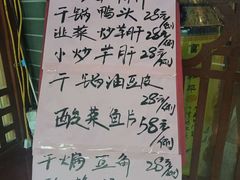 干锅鸭头28元/例
韭菜炒羊肝28元/例
小炒羊肝28元/例
干锅油豆皮28元/例
酸菜鱼片58元/例
干焗豆角28元/例